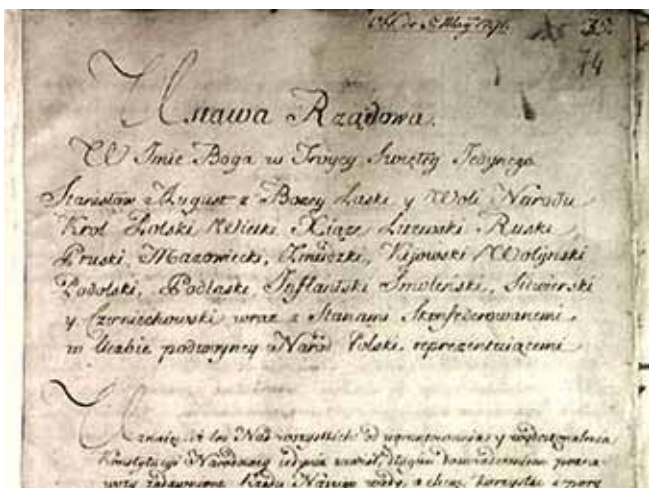 35.
74
Ustawa Rządowa.
W Imie Boga w Troycy Swiętey Jedynego
Stanisław August z Bozey Łaski y Woli Narodu
Krol Polski Wielki Xiąze Litewski Ruski
Pruski, Mazowiecki, Zmudzki, Kijowski Wołynski
Podolski, Podlaski, Inflantski Smolenski, Siewierski
y Czerniechowski wraz z Stanami Skonfederowanemi
w liczbie podwoyney Narod Polski reprezentuiącemi
Uznaiąc, iż los Nas wszystkich od ugruntowania y wydoskonalenia
Konstytucyi Narodowey iedynie zawisł, długim doswiadczeniem
zadawnione Rządu Naszego wady, a chcąc korzystac z pory